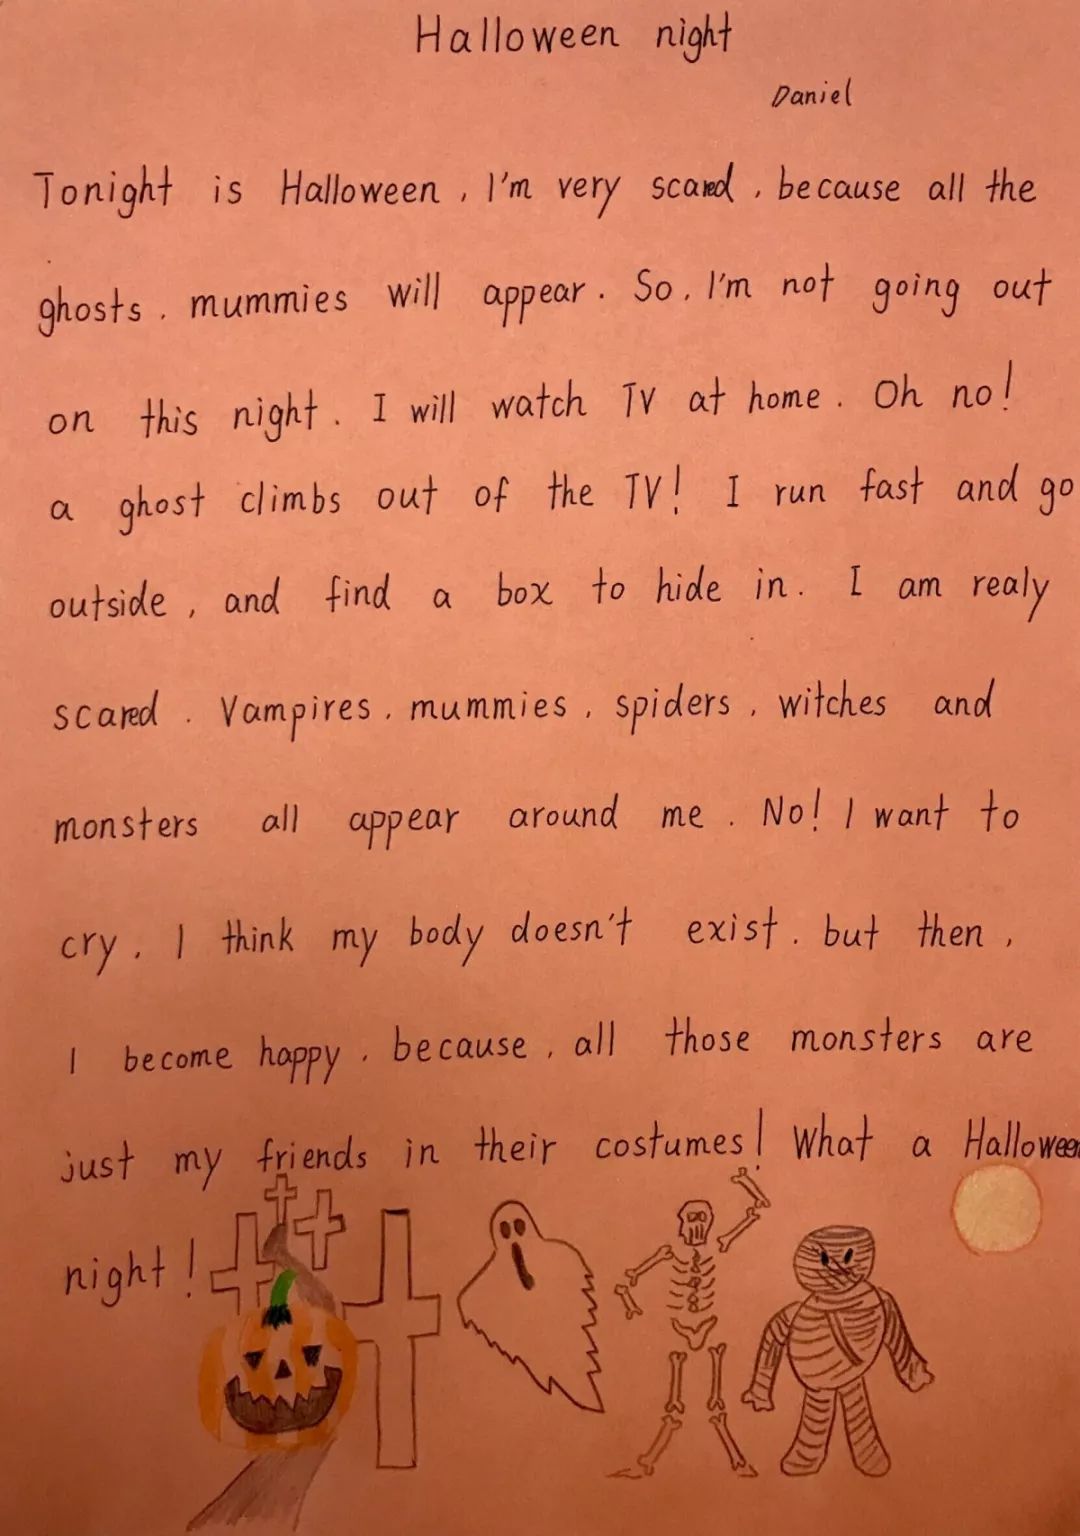 Halloween night
Daniel
Tonight is Halloween, I'm very scared, because all the
ghosts, mummies will appear. So, I'm not going out
on this night. I will watch TV at home. Oh no!
a ghost climbs out of the TV! I run fast and go
outside, and find a box to hide in. I am realy
scared. Vampires, mummies, spiders, witches and
monsters all appear around me. No! I want to
cry. I think my body doesn't exist. but then,
I become happy, because, all those monsters are
just my friends in their costumes! What a Halloween
night!